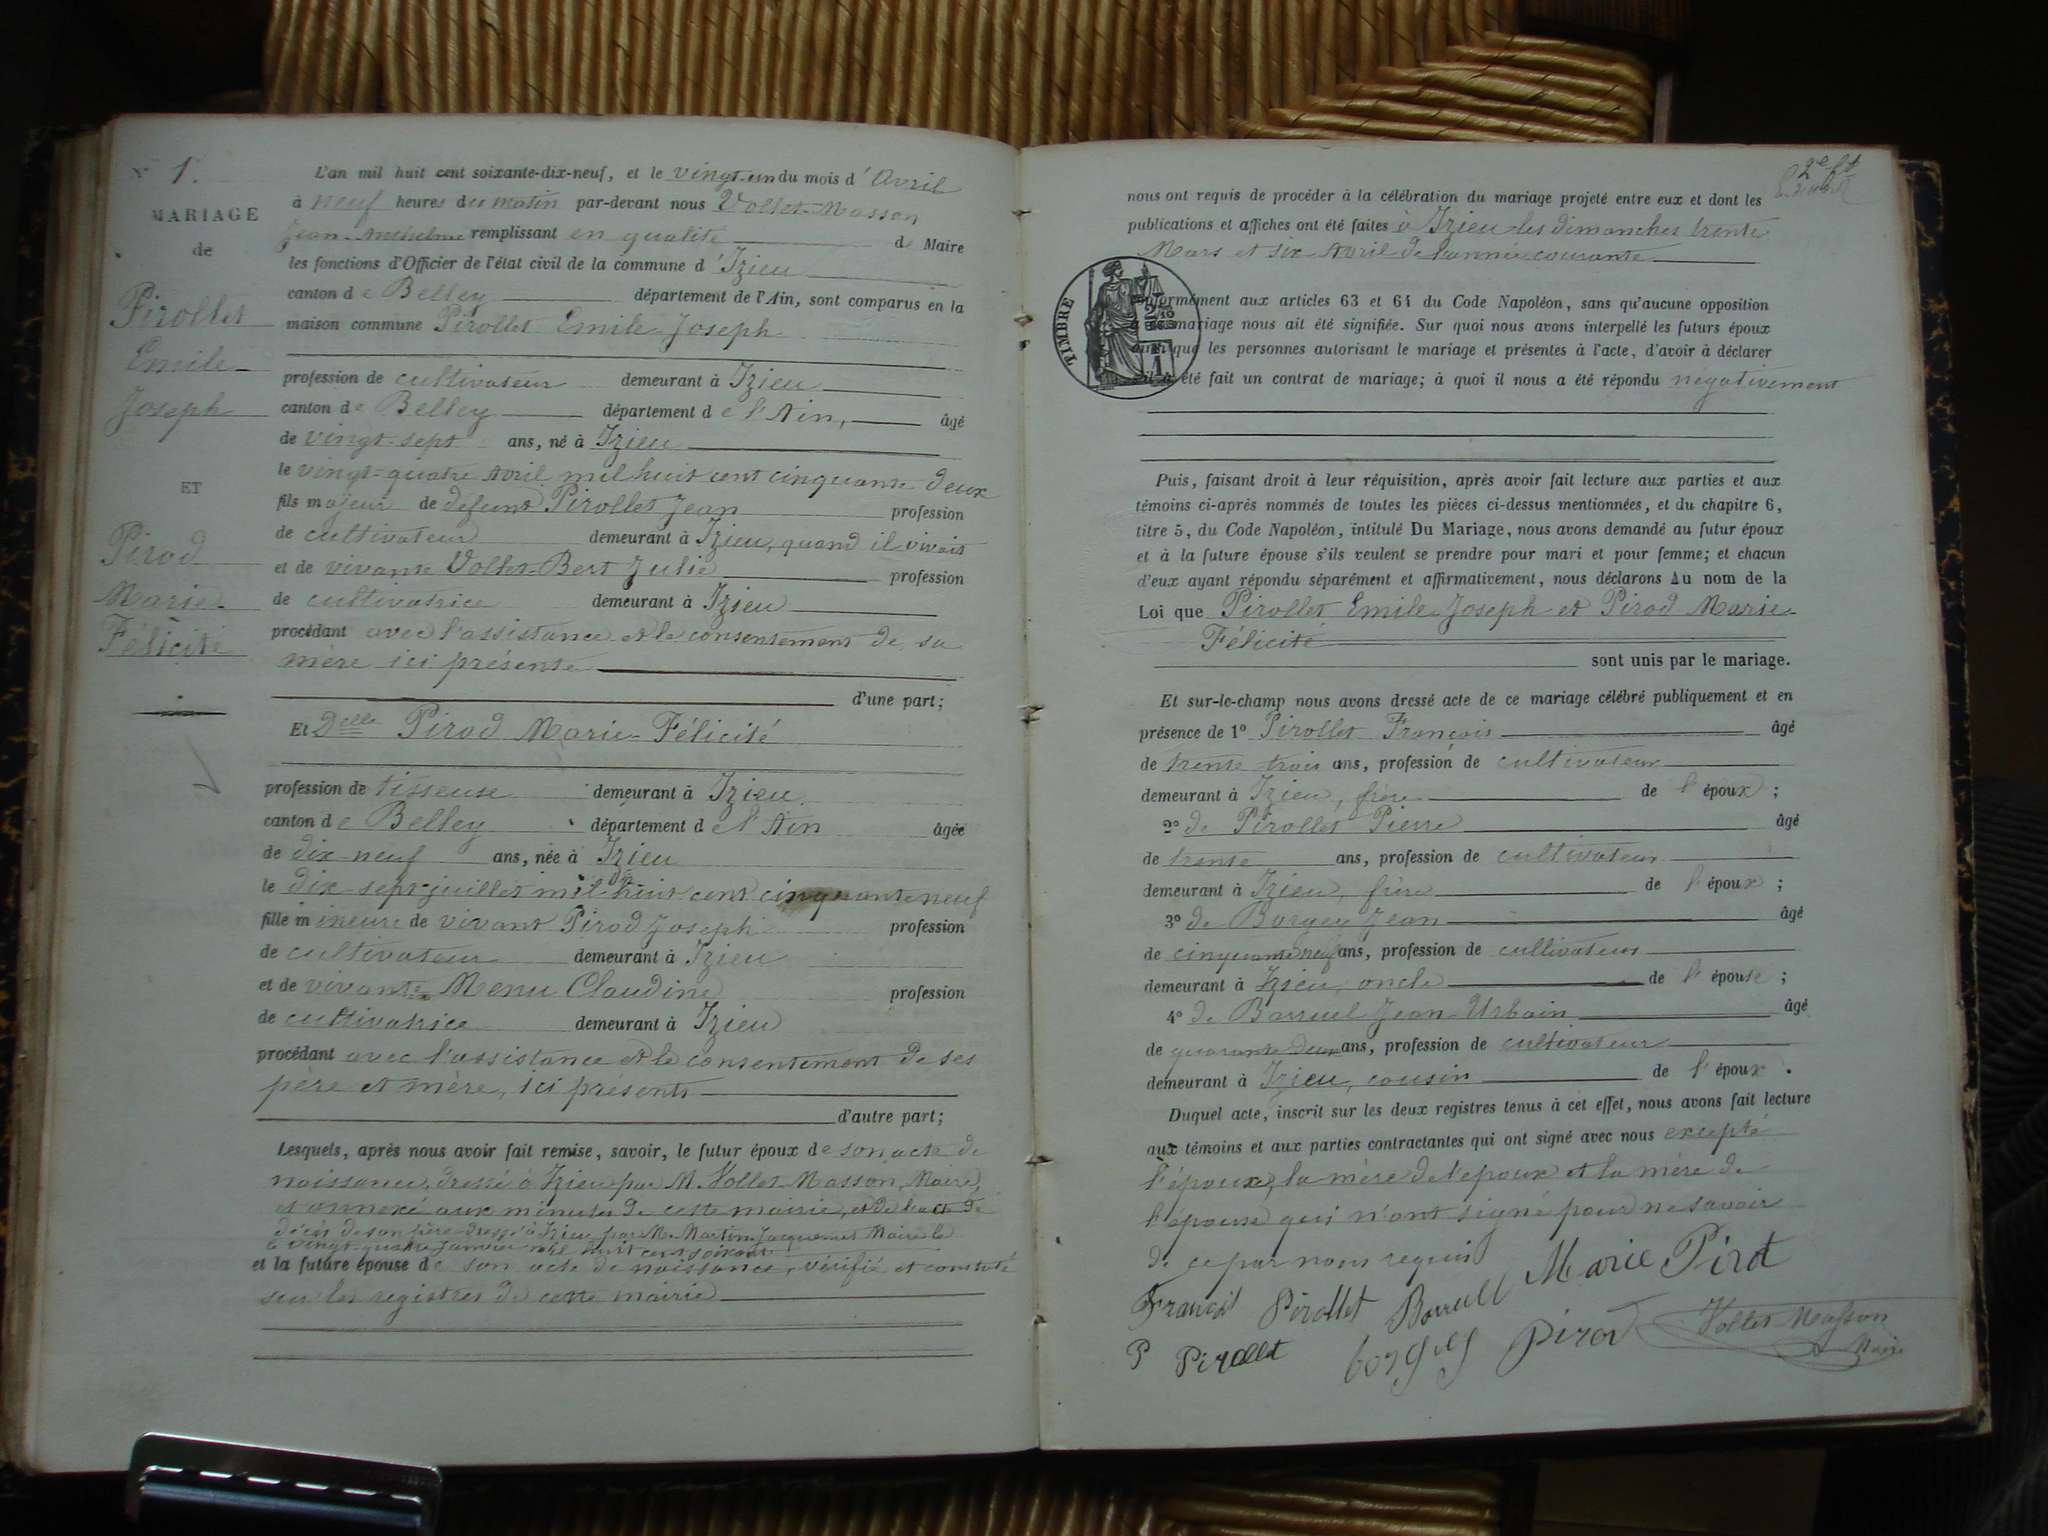 N° 1.
MARIAGE
de
Pirollet
Emile
Joseph
ET
Pirod
Marie
Félicité
L'an mil huit cent soixante-dix-neuf, et le vingt-un du mois d'Avril
à neuf heures du matin par-devant nous Vollet-Masson
Jean-Anthelme remplissant en qualité de Maire
les fonctions d'Officier de l'état civil de la commune d'Izieu
canton de Belley département de l'Ain, sont comparus en la
maison commune Pirollet Emile Joseph
profession de cultivateur demeurant à Izieu
canton de Belley département de l'Ain, âgé
de vingt-sept ans, né à Izieu
le vingt-quatre Avril mil huit cent cinquante deux
fils majeur de défunt Pirollet Jean profession
de cultivateur demeurant à Izieu, quand il vivait
et de vivante Vollet-Bert Julie profession
de cultivatrice demeurant à Izieu
procédant avec l'assistance et le consentement de sa
mère ici présente
d'une part;
Et Delle Pirod Marie-Félicité
profession de tisseuse demeurant à Izieu
canton de Belley département de l'Ain âgée
de dix-neuf ans, née à Izieu
le dix-sept juillet mil huit cent cinquante neuf
fille mineure de vivant Pirod Joseph profession
de cultivateur demeurant à Izieu
et de vivante Menu Claudine profession
de cultivatrice demeurant à Izieu
procédant avec l'assistance et le consentement de ses
père et mère, ici présents
d'autre part;
Lesquels, après nous avoir fait remise, savoir, le futur époux de son acte de
naissance, dressé à Izieu par M. Vollet-Masson, Maire,
et annexé aux minutes de cette mairie, et de l'acte de
décès de son père dressé à Izieu par M. Martin-Jacquemet Maire le
vingt-quatre Janvier mil huit cent soixante
et la future épouse de son acte de naissance, vérifié et constaté
sur les registres de cette mairie
2e
nous ont requis de procéder à la célébration du mariage projeté entre eux et dont les
publications et affiches ont été faites à Izieu les dimanches trente
Mars et six Avril de l'année courante
TIMBRE
conformément aux articles 63 et 64 du Code Napoléon, sans qu'aucune opposition
mariage nous ait été signifiée. Sur quoi nous avons interpellé les futurs époux
ainsi que les personnes autorisant le mariage et présentes à l'acte, d'avoir à déclarer
s'il a été fait un contrat de mariage; à quoi il nous a été répondu négativement
Puis, faisant droit à leur réquisition, après avoir fait lecture aux parties et aux
témoins ci-après nommés de toutes les pièces ci-dessus mentionnées, et du chapitre 6,
titre 5, du Code Napoléon, intitulé Du Mariage, nous avons demandé au futur époux
et à la future épouse s'ils veulent se prendre pour mari et pour femme; et chacun
d'eux ayant répondu séparément et affirmativement, nous déclarons Au nom de la
Loi que Pirollet Emile Joseph et Pirod Marie
Félicité
sont unis par le mariage.
Et sur-le-champ nous avons dressé acte de ce mariage célébré publiquement et en
présence de 1° Pirollet François âgé
de trente trois ans, profession de cultivateur
demeurant à Izieu, frère de l'époux;
2° de Pirollet Pierre âgé
de trente ans, profession de cultivateur
demeurant à Izieu, frère de l'époux;
3° de Borgey Jean âgé
de cinquante neuf ans, profession de cultivateur
demeurant à Izieu, oncle de l'épouse;
4° de Barruel Jean-Urbain âgé
de quarante deux ans, profession de cultivateur
demeurant à Izieu, cousin de l'époux.
Duquel acte, inscrit sur les deux registres tenus à cet effet, nous avons fait lecture
aux témoins et aux parties contractantes qui ont signé avec nous excepté
l'époux, la mère de l'époux et la mère de
l'épouse qui n'ont signé pour ne savoir
de ce par nous requis
Marie Pirot
François Pirollet Barruel
P Pirollet borgey Pirod Vollet-Masson
Maire